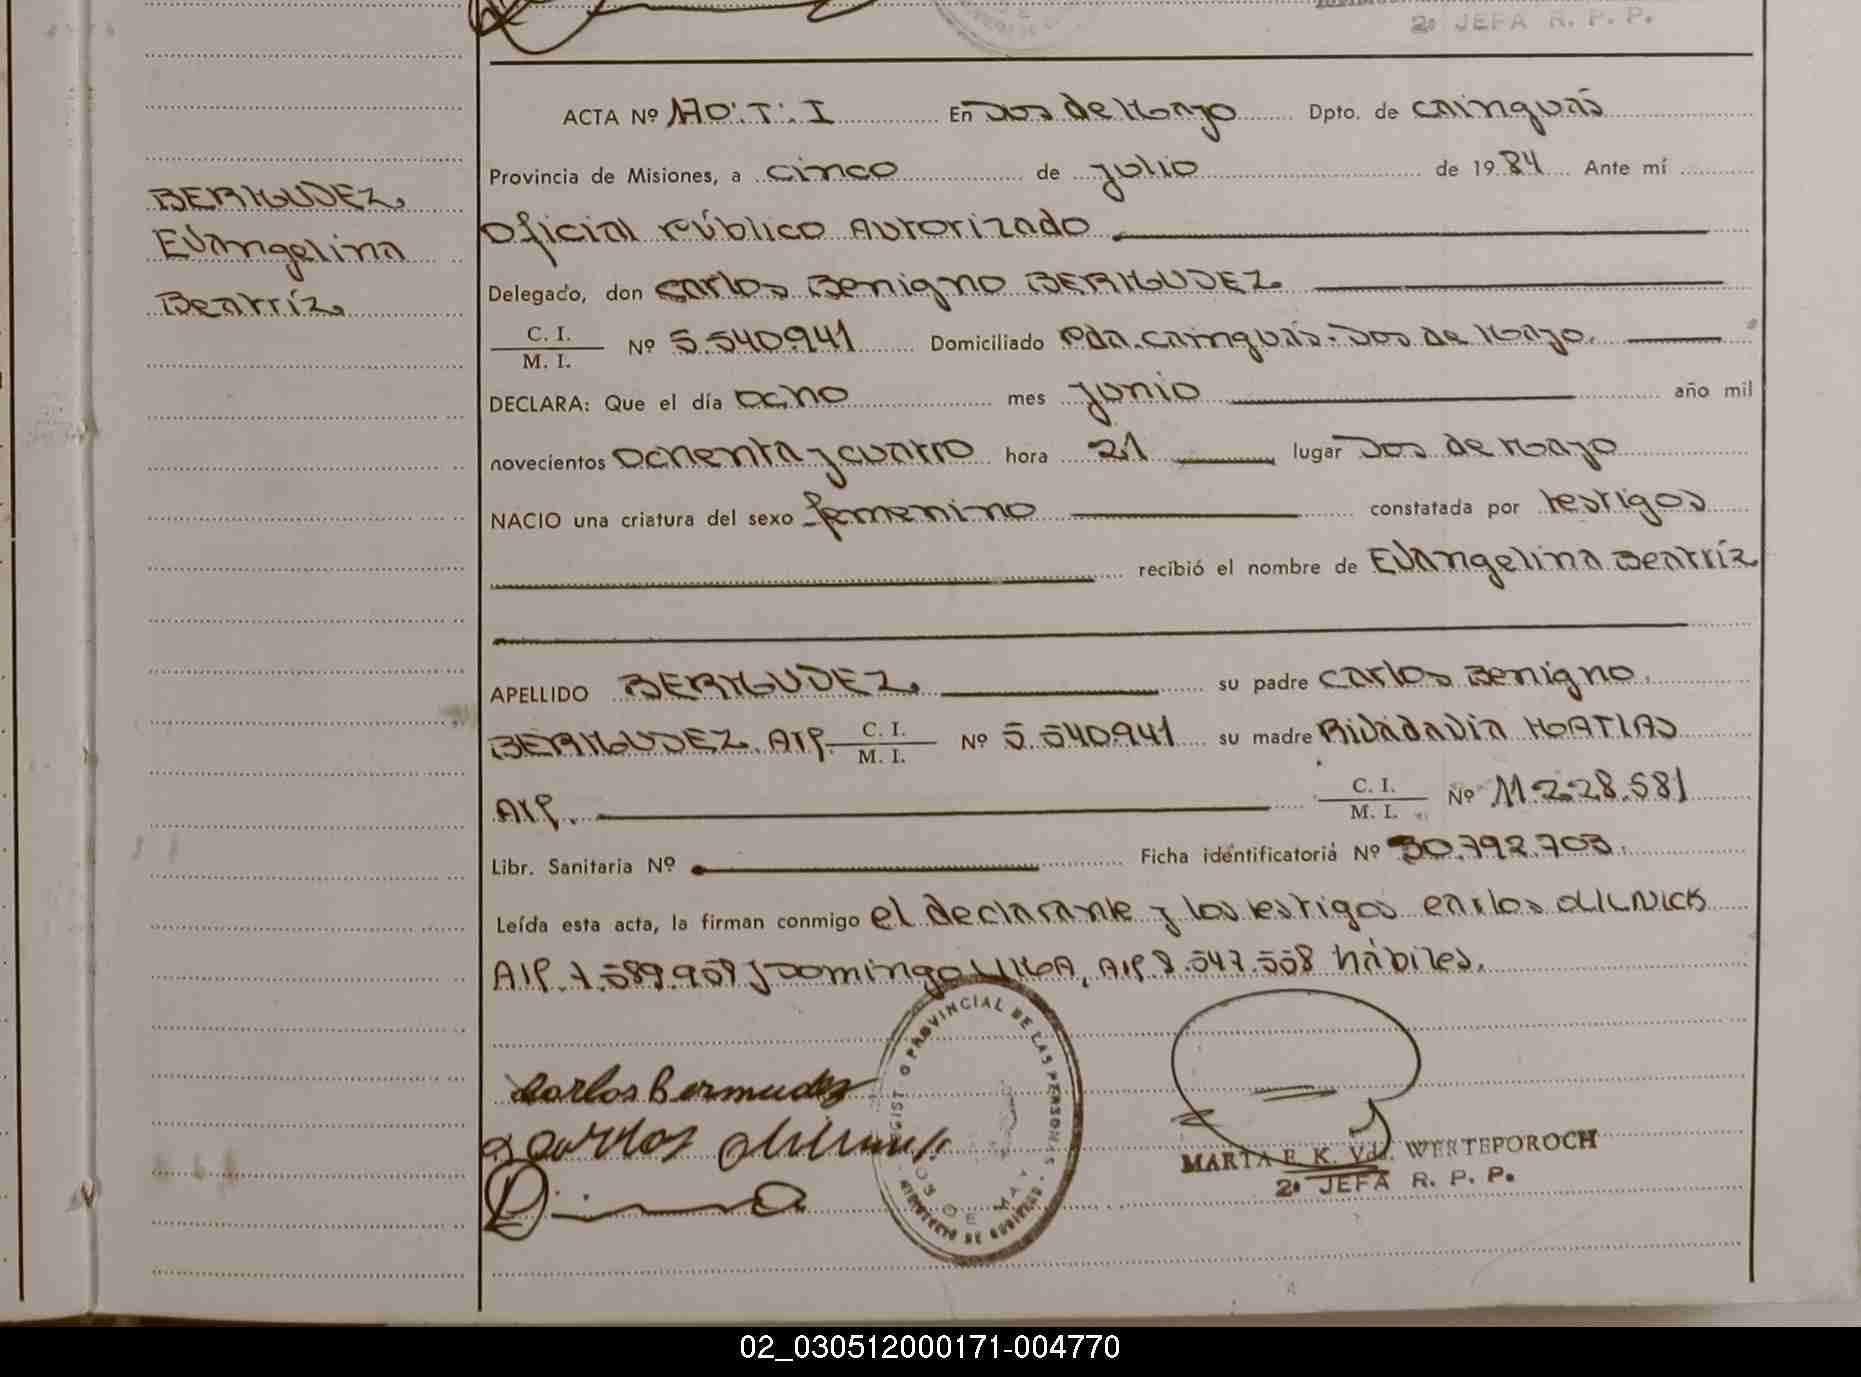 2º JEFA R. P. P.
ACTA Nº 170:T:I En Dos de Mayo Dpto. de Cainguás
Provincia de Misiones, a cinco de julio de 1984 Ante mí
Oficial Público Autorizado
Delegado, don Carlos Benigno BERMUDEZ.
C. I.
M. I. Nº 5.540.941 Domiciliado Pda. Cainguás-Dos de Mayo.
DECLARA: Que el día ocho mes junio año mil
novecientos ochenta y cuatro hora 21 lugar Dos de Mayo
NACIO una criatura del sexo femenino constatada por testigos
recibió el nombre de Evangelina Beatríz
APELLIDO BERMUDEZ. su padre Carlos Benigno
BERMUDEZ. AIP. C. I.
M. I. Nº 5.540.941 su madre Rivadavia MATIAS
AIP. C. I.
M. I. Nº 11.228.581
Libr. Sanitaria Nº Ficha identificatoria Nº 30.792.703.
Leída esta acta, la firman conmigo el declarante y los testigos Carlos OLILNICK
AIP. 7.589.959 y Domingo LIMA, AIP 8.547.558 hábiles.
BERMUDEZ.
Evangelina
Beatríz.
Carlos Bermudez
Carlos
PROVINCIAL DE LAS PERSONAS
DOS DE MAYO
MINISTERIO DE GOBIERNO
MARTA E. K. Vda. WERTEPOROCH
2º JEFA R. P. P.
02_030512000171-004770